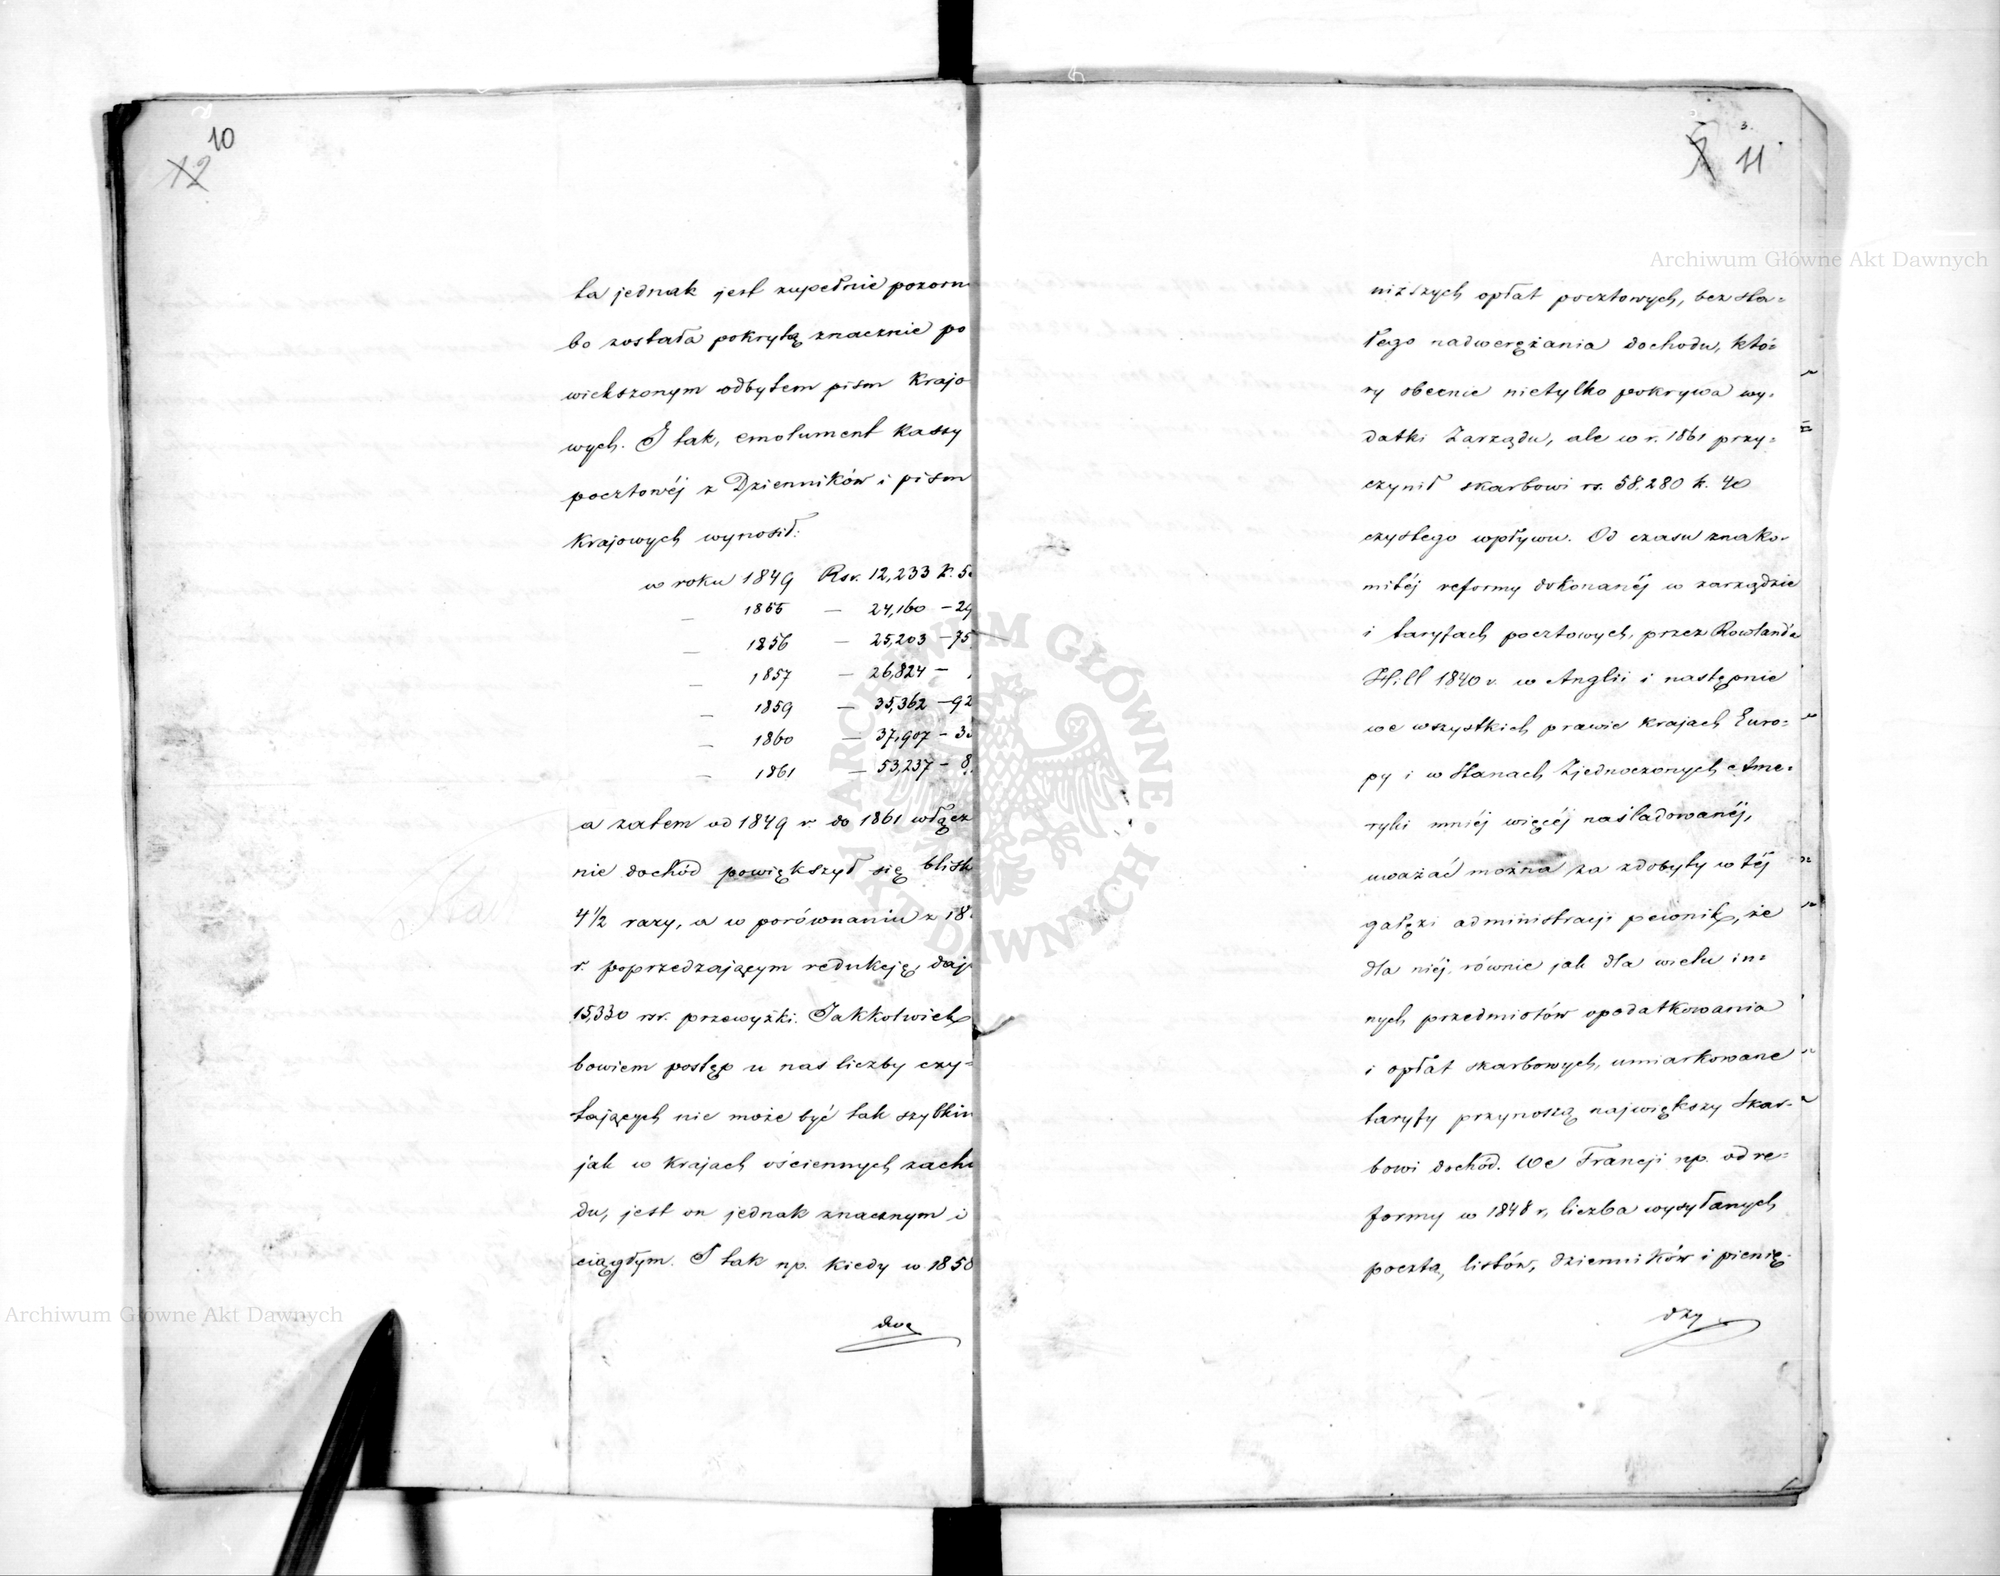 10
ta jednak jest zupełnie pozorn
bo została pokrytą znacznie po
wiekszonym odbytem pism Krajo
wych. I tak, emolument Kassy
pocztowéj z Dzienników i pism
Krajowych wynosił:
w roku 1849 Rsr. 12,233 k. 5
— 1855 — 24,160 — 29
— 1856 — 25,203 — 75
— 1857 — 26,824 —
— 1859 — 35,362 — 92
— 1860 — 37,907 — 3
— 1861 — 53,237 — 8
a zatem od 1849 r. do 1861 włącz
nie dochód powiększył się blisk
4 1/2 razy, a w porównaniu z 18
r. poprzedzającym redukcję, daj
15,330 rsr. przewyżki. Jakkolwiek
bowiem postęp u nas liczby czy=
tających nie może być tak szybkim
jak w Krajach ościennych zach
du, jest on jednak znacznym i
ciągłym. I tak np. kiedy w 1850
3.
11
niższych opłat pocztowych, bez sta=
łego nadwerężania dochodu, któ=
ry obecnie nietylko pokrywa wy=
datki Zarządu, ale w r. 1861 przy=
czynił skarbowi rs. 58,280 k. 40
czystego wpływu. Od czasu znako=
mitéj reformy dokonanéj w zarządzie
i taryfach pocztowych, przez Rowland'a
Hill 1840 r. w Anglii i następnie
we wszystkich prawie Krajach Euro=
py i w Stanach Zjednoczonych Ame=
ryki mniéj więcéj naśladowanéj,
uważać można za zdobyty w téj
gałęzi administracji pewnik, że
dla niéj, równie jak dla wielu in=
nych przedmiotów opodatkowania
i opłat skarbowych, umiarkowane
taryfy przynoszą największy Skar=
bowi dochód. We Francji np. od re=
formy w 1848 r, liczba wysyłanych
pocztą, listów, dzienników i pienię=
dzy
Archiwum Główne Akt Dawnych
Archiwum Główne Akt Dawnych
ARCHIWUM GŁÓWNE AKT DAWNYCH